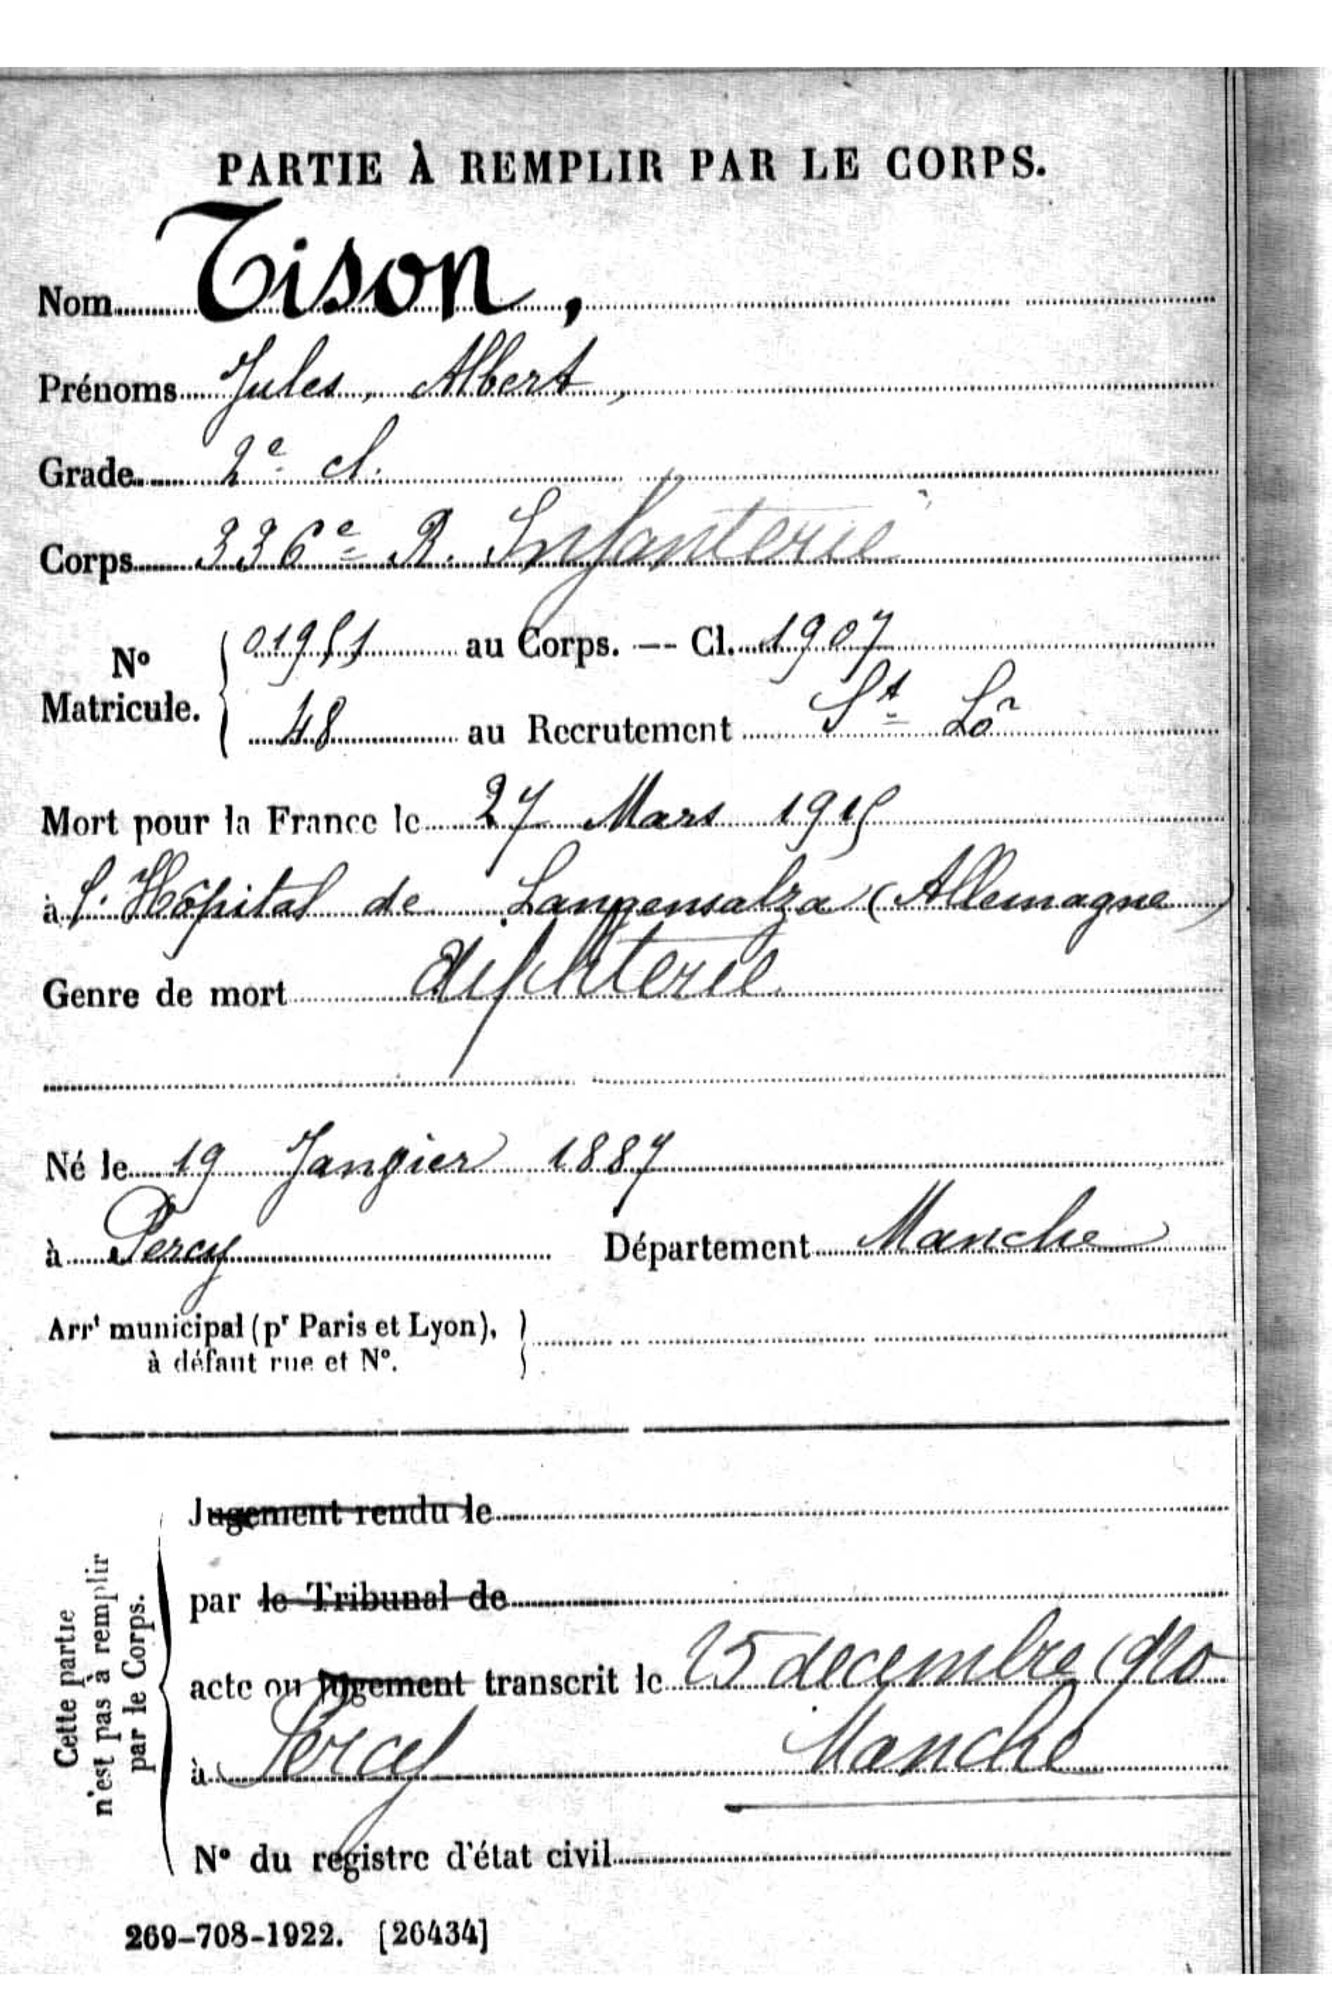 PARTIE À REMPLIR PAR LE CORPS.
Nom Tison,
Prénoms Jules, Albert,
Grade 2e cl.
Corps 336e R. Infanterie
No Matricule. { 01951 au Corps. — Cl. 1907
48 au Recrutement St Lô
Mort pour la France le 27 Mars 1915
à l'Hôpital de Langensalza (Allemagne)
Genre de mort diphterie
Né le 19 Janvier 1887
à Percy Département Manche
Arrt municipal (pr Paris et Lyon), }
à défaut rue et No.
Cette partie
n'est pas à remplir
par le Corps.
Jugement rendu le
par le Tribunal de
acte ou jugement transcrit le 25 decembre 1920
à Percy Manche
No du registre d'état civil
269-708-1922. [26434]